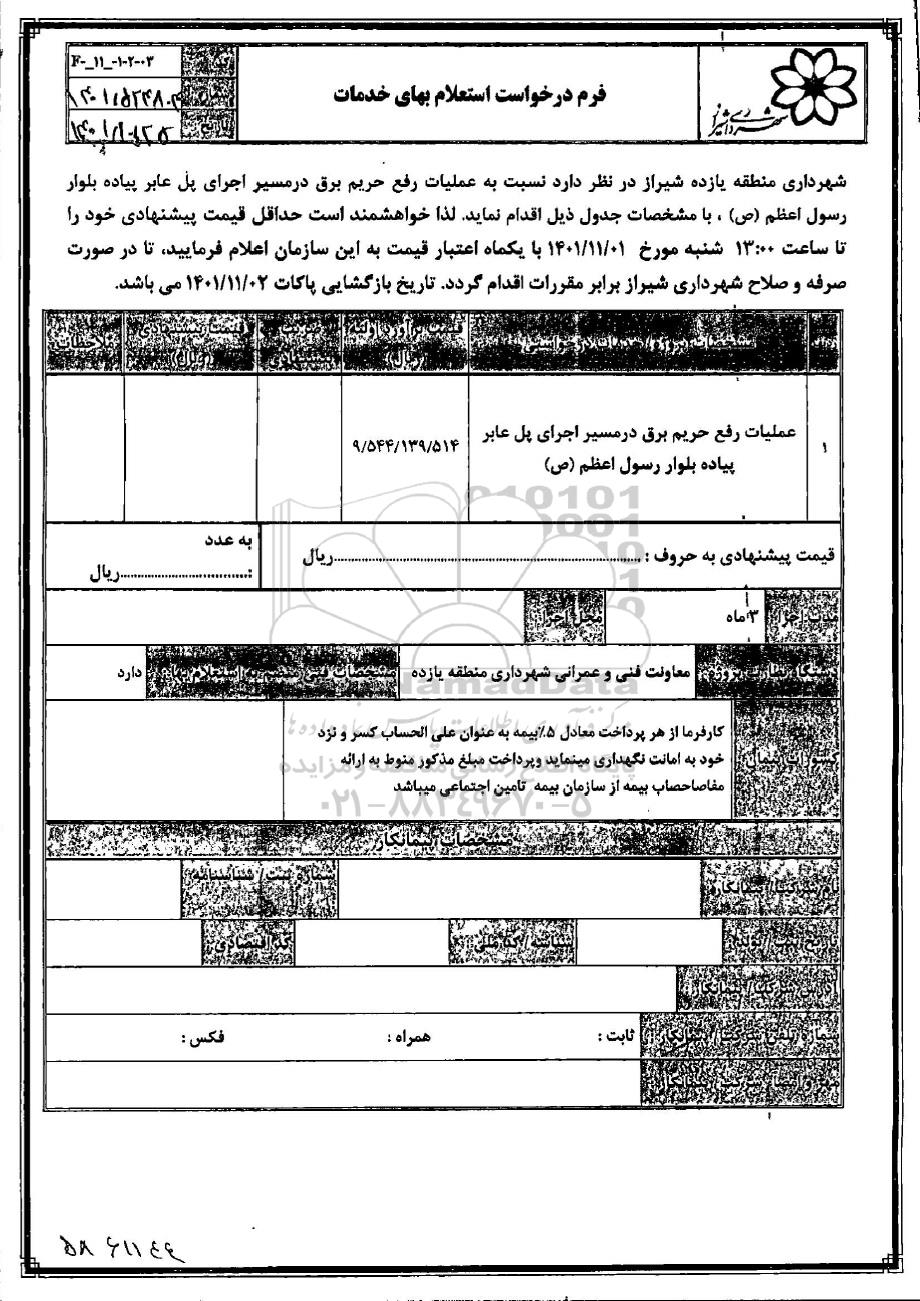 F-_۱۱_-۱-۲-۰۳
فرم درخواست استعلام بهای خدمات
شهرداری شیراز
شهرداری منطقه یازده شیراز در نظر دارد نسبت به عملیات رفع حریم برق درمسیر اجرای پل عابر پیاده بلوار
رسول اعظم (ص) ، با مشخصات جدول ذیل اقدام نماید. لذا خواهشمند است حداقل قیمت پیشنهادی خود را
تا ساعت ۱۳:۰۰ شنبه مورخ ۱۴۰۱/۱۱/۰۱ با یکماه اعتبار قیمت به این سازمان اعلام فرمایید، تا در صورت
صرفه و صلاح شهرداری شیراز برابر مقررات اقدام گردد. تاریخ بازگشایی پاکات ۱۴۰۱/۱۱/۰۲ می باشد.
قیمت برآورد اولیه
(ریال)
قیمت پیشنهادی
(ریال)
ملاحظات
۱
عملیات رفع حریم برق درمسیر اجرای پل عابر
پیاده بلوار رسول اعظم (ص)
۹/۵۴۴/۱۳۹/۵۱۴
قیمت پیشنهادی به حروف : ........................................ریال
به عدد
:..................................ریال
مدت اجرا
۳ماه
محل اجرا
دستگاه نظارت پروژه
معاونت فنی و عمرانی شهرداری منطقه یازده
مشخصات فنی منضم به استعلام بها
دارد
کسورات پیمان
کارفرما از هر پرداخت معادل ۵٪بیمه به عنوان علی الحساب کسر و نزد
خود به امانت نگهداری مینماید وپرداخت مبلغ مذکور منوط به ارائه
مفاصاحصاب بیمه از سازمان بیمه تامین اجتماعی میباشد
مشخصات پیمانکار
نام شرکت/ پیمانکار
شماره ثبت/ شناسنامه
تاریخ ثبت / تولد
شناسه / کد ملی
کد اقتصادی
آدرس شرکت/ پیمانکار
شماره تلفن شرکت / پیمانکار
ثابت :
همراه :
فکس :
مهر و امضا شرکت / پیمانکار
HamadData
پایگاه اطلاع رسانی مناقصه و مزایده
۰۲۱-۸۸۳۴۹۶۷۰-۵